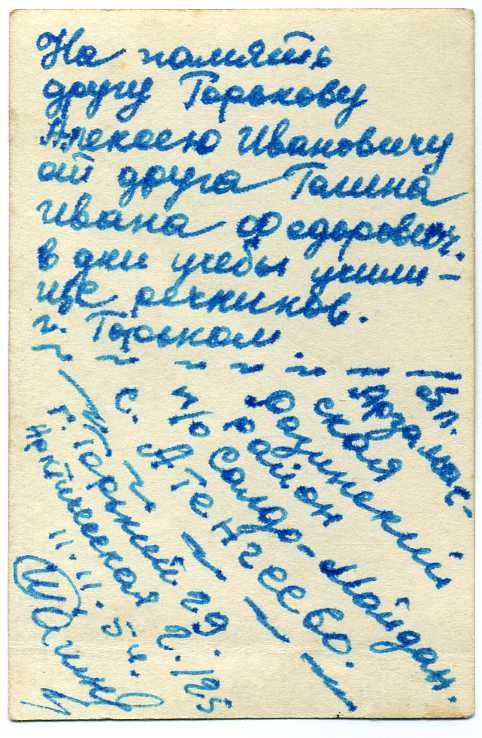 На память
другу Горькову
Алексею Ивановичу
от друга Галина
Ивана Федорович.
в дни учебы учили-
ще речников.
г. Горьком
Арзамас-
ская обл.
Вознесенский
район
п/о Салдо-Майдан.
с. Атенгеево.
г. Горький 29.
Арктическая 2.
11.11.54.